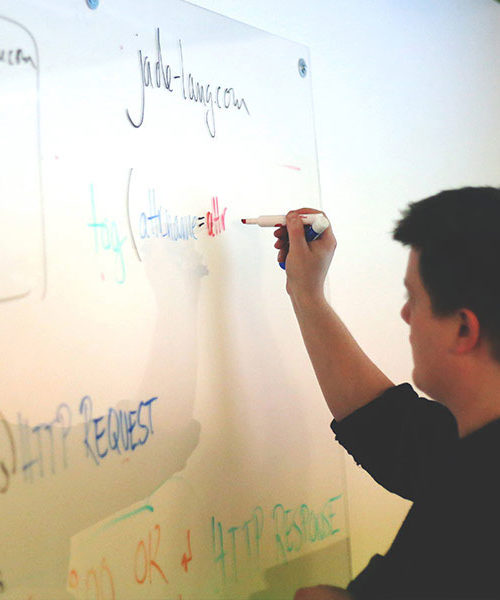 jade-lang.com
tag (attrname=attr
HTTP REQUEST
OR
HTTP RESPONSE